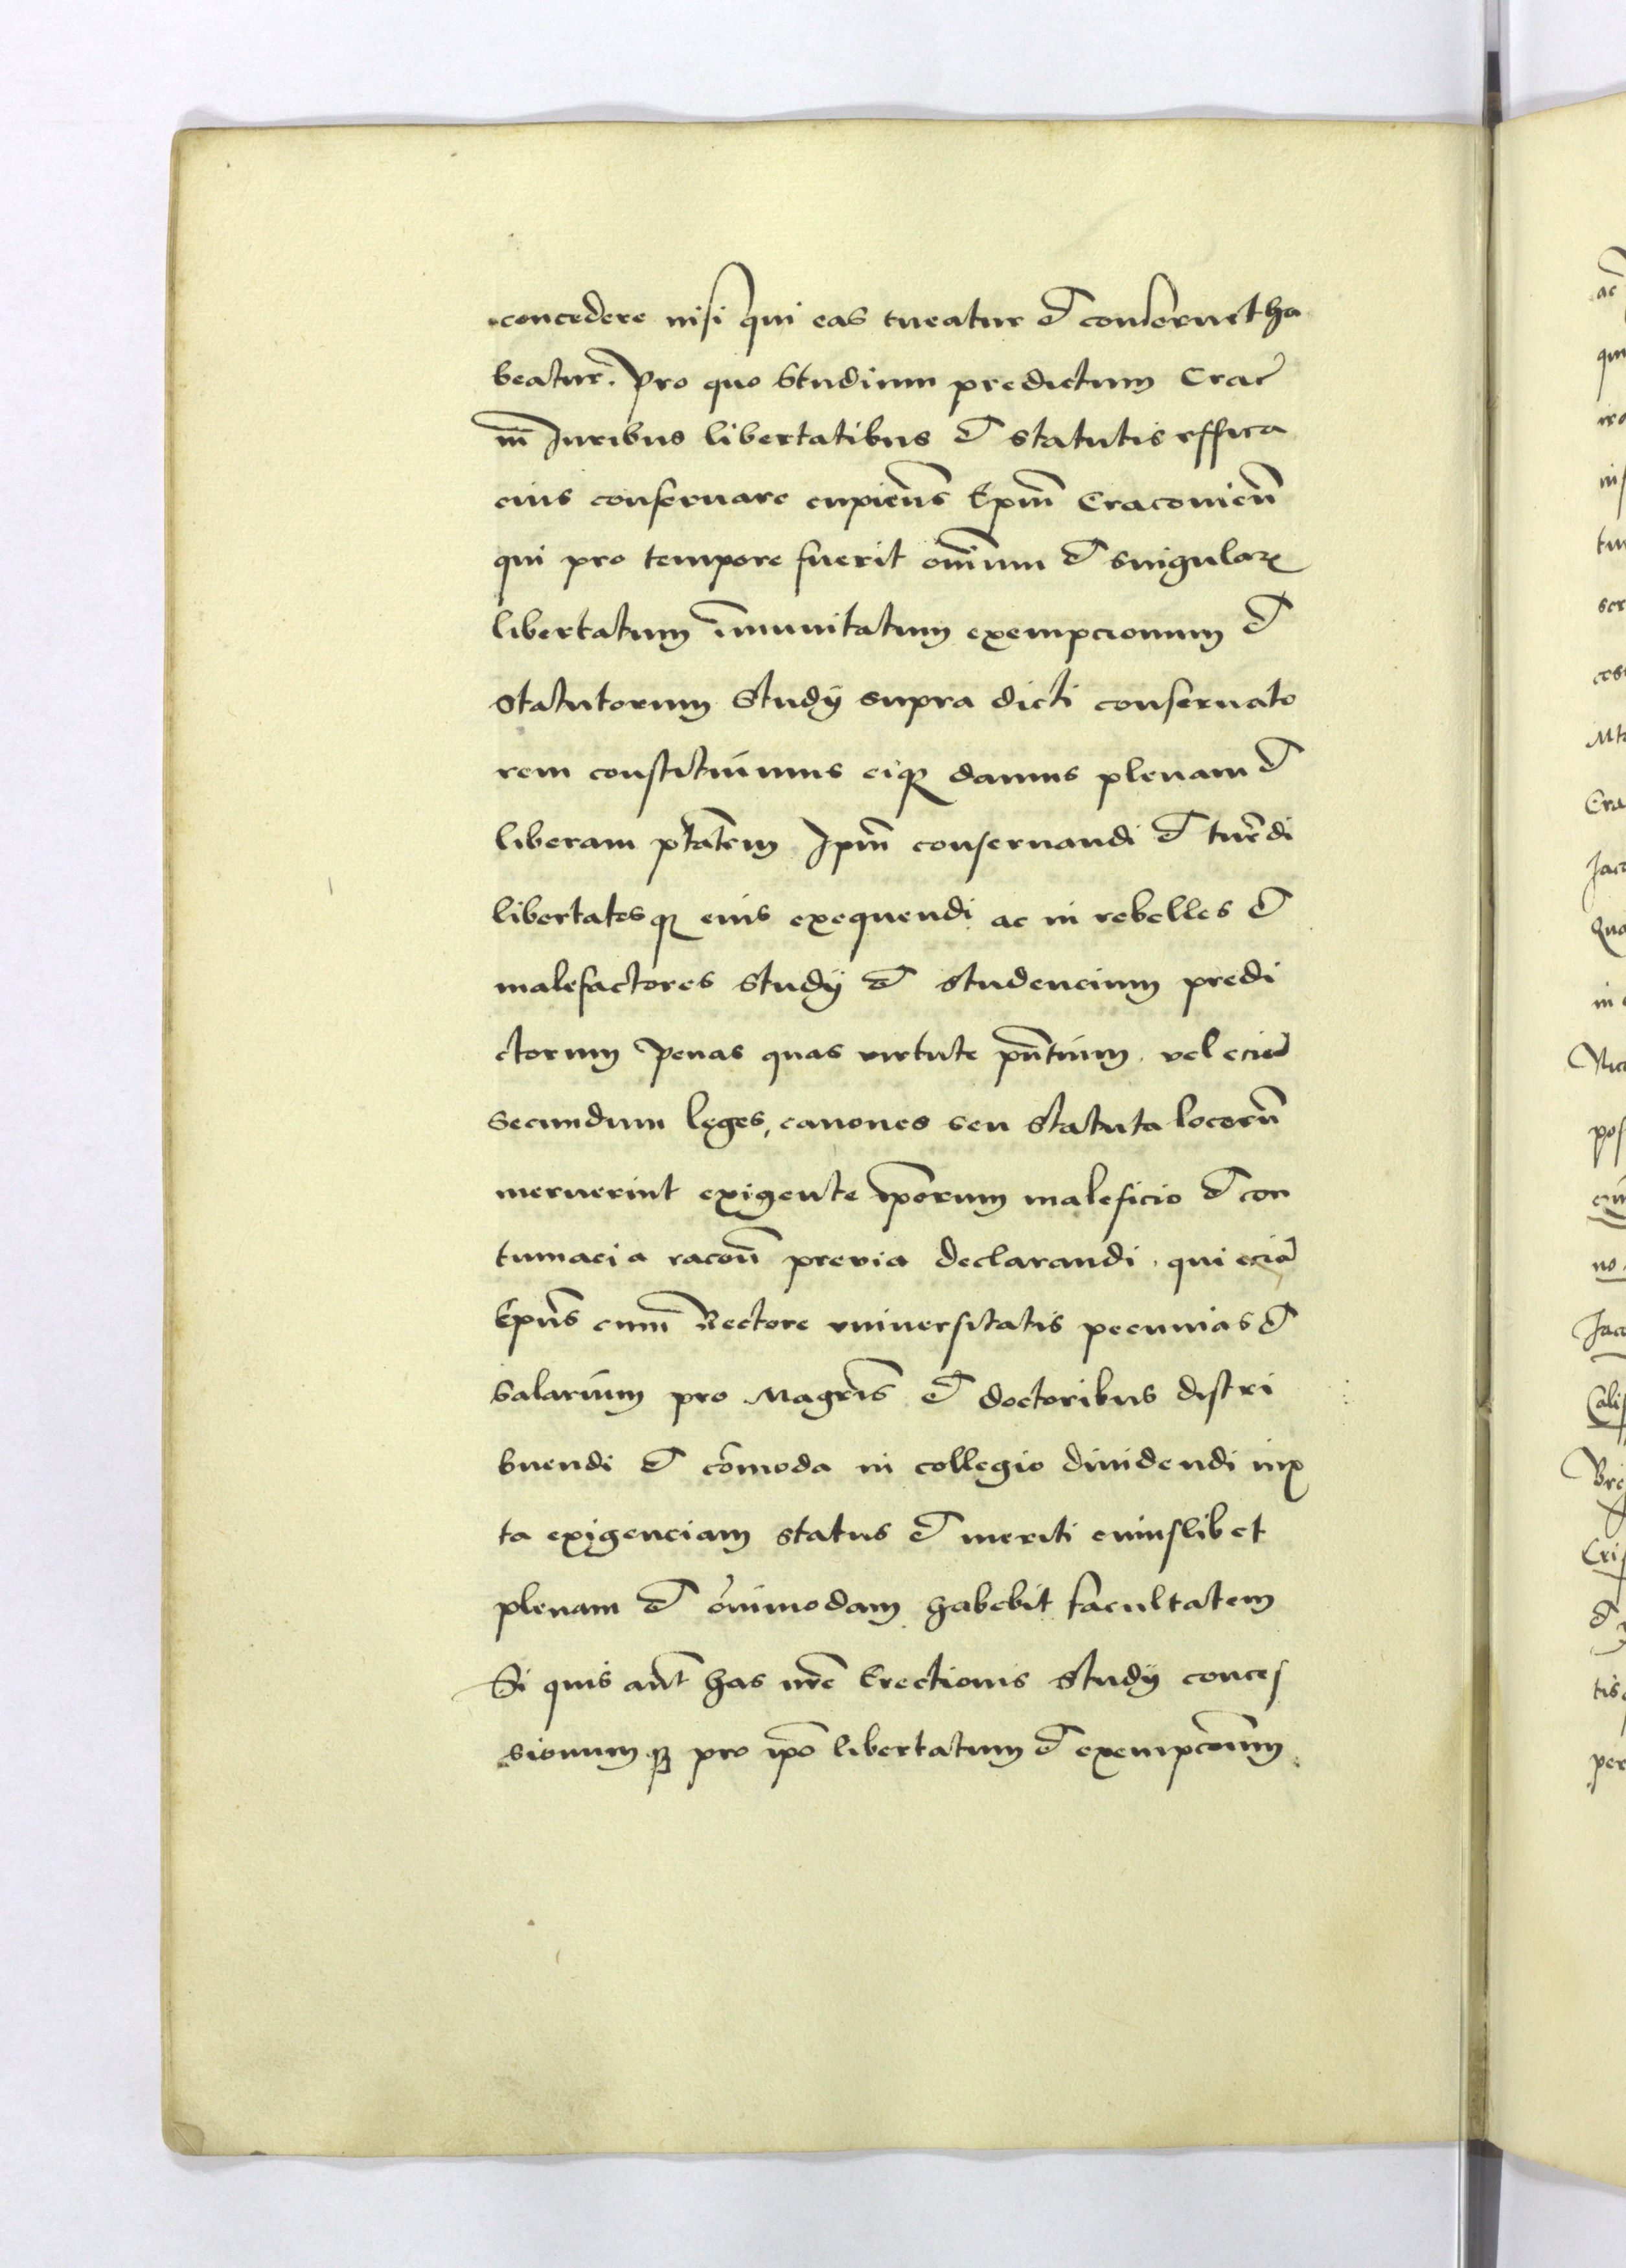 concedere nisi qui eas tueatur et conseruet ha
beatur̃. Pro quo Studium predictum Crac̃
in̄ Juribus libertatibus et statutis effica
cius conseruare cupiens̃ Ep̃m Cracouien̄
qui pro tempore fuerit om̃ium et singulaꝝ
libertatum im̄unitatum exempcionum et
statutorum Study̆ supra dicti conseruato
rem constituimus eiqꝫ damus plenam et
liberam p̃tatem Ip̃m conseruandi et tuẽdi
libertatesqꝫ eius exequendi ac in rebelles et
malefactores Study̆ et studencium predi
ctorum penas quas virtute pñtium vel eciã
secundum leges, canones seu statuta locorũ
meruerint exigente ip̃orum maleficio et con
tumacia racoñ previa declarandi. qui eciã
Ep̃us cum̄ Rectore vniuersitatis pecunias et
salarium pro Magr̃is et doctoribus distri
buendi et com̃oda in collegio diuidendi iux
ta exigenciam status et meriti cuiuslibet
plenam et om̃imodam habebit facultatem
Si quis aut̃ has nr̃e Erectionis study̆ conces
sionumqꝫ pro ip̃o libertatum et exempc̃onum